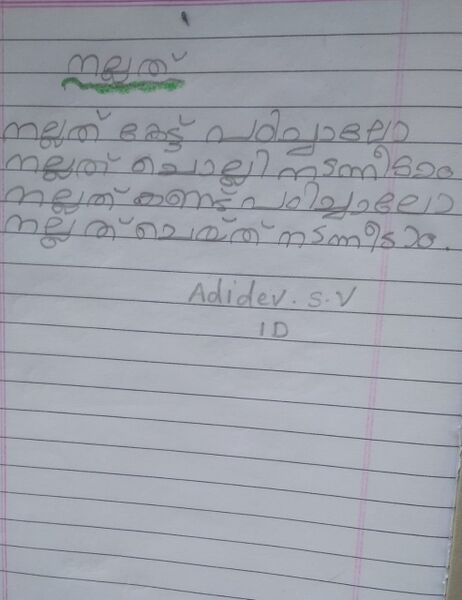 നല്ലത്
നല്ലത് കേട്ട് പഠിച്ചാലോ
നല്ലത് ചൊല്ലി നടന്നീടാം
നല്ലത് കണ്ട് പഠിച്ചാലോ
നല്ലത് ചെയ്ത് നടന്നീടാം.
Adidev. S. V
1D